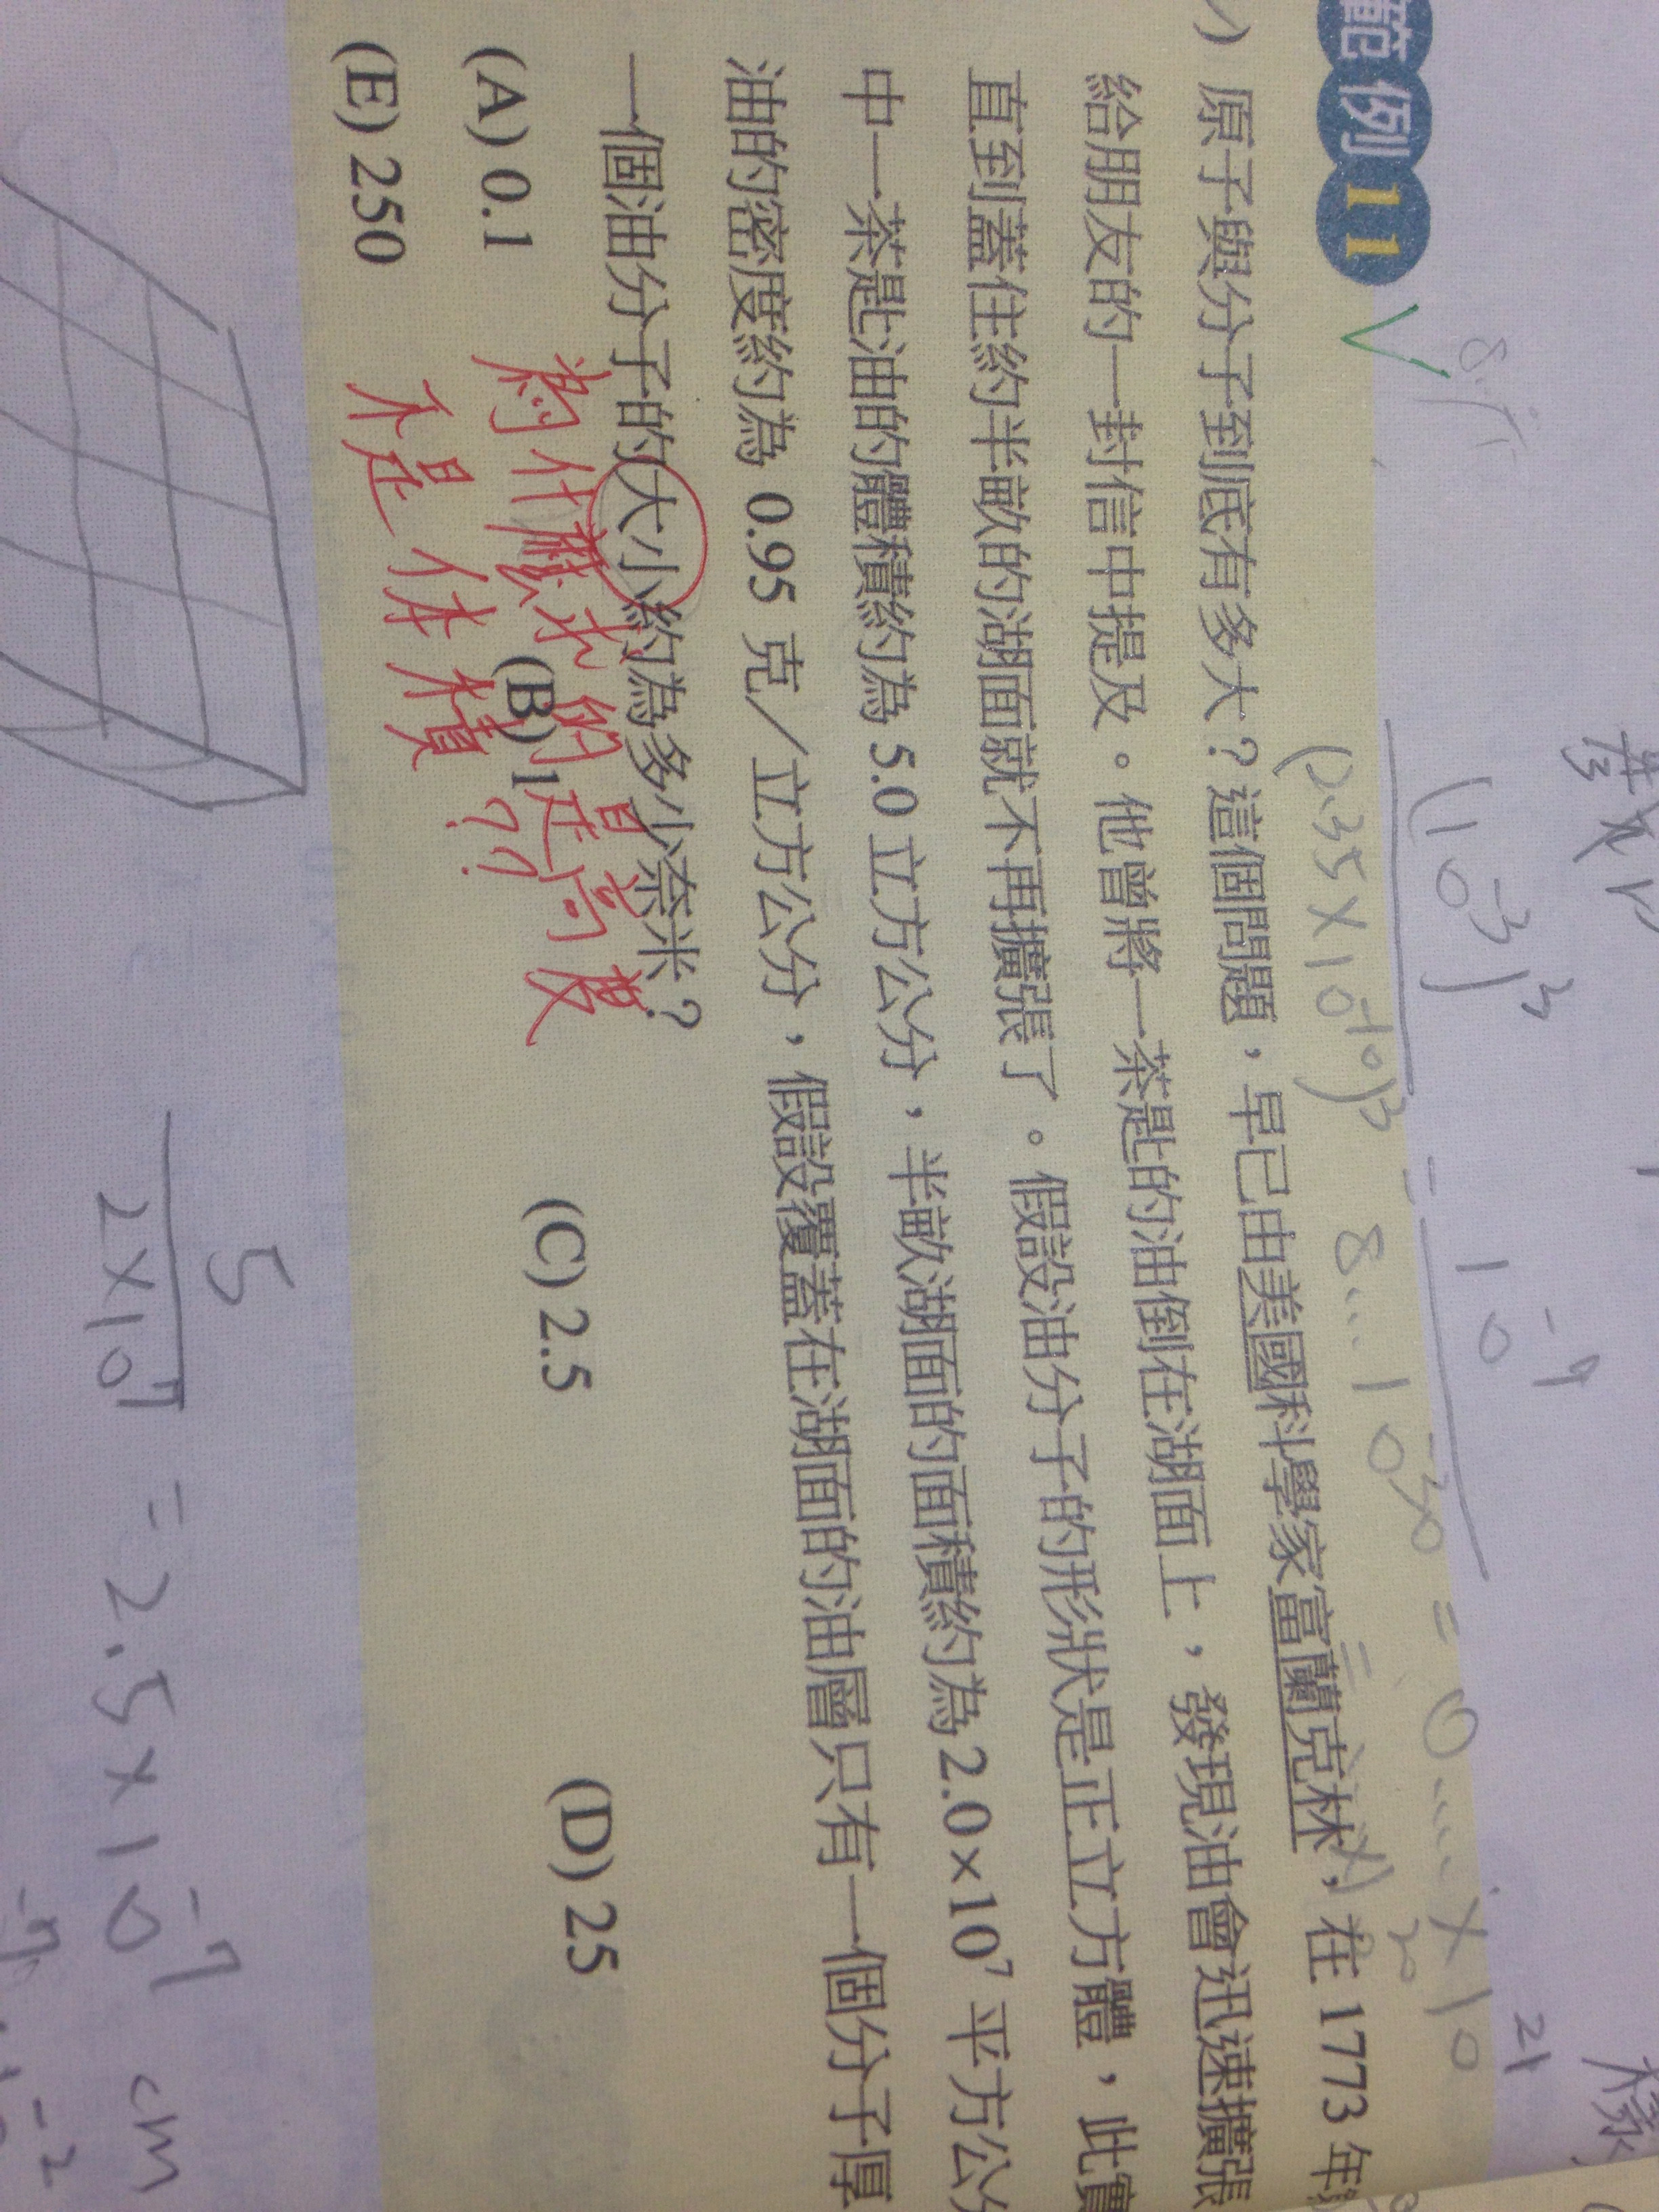 範例 11
原子與分子到底有多大？這個問題，早已由美國科學家富蘭克林，在 1773 年
給朋友的一封信中提及。他曾將一茶匙的油倒在湖面上，發現油會迅速擴張
直到蓋住約半畝的湖面就不再擴張了。假設油分子的形狀是正立方體，此實
中一茶匙油的體積約為 5.0 立方公分，半畝湖面的面積約為 2.0×10⁷ 平方公分
油的密度約為 0.95 克／立方公分，假設覆蓋在湖面的油層只有一個分子厚
一個油分子的大小約為多少奈米？
(A) 0.1 (B) 1 (C) 2.5 (D) 25
(E) 250
為什麼求的是高度
不是体積??
(10⁻³)³
(0.35×10⁻¹⁰)³
5
2×10⁷
=2.5×10⁻⁷ cm